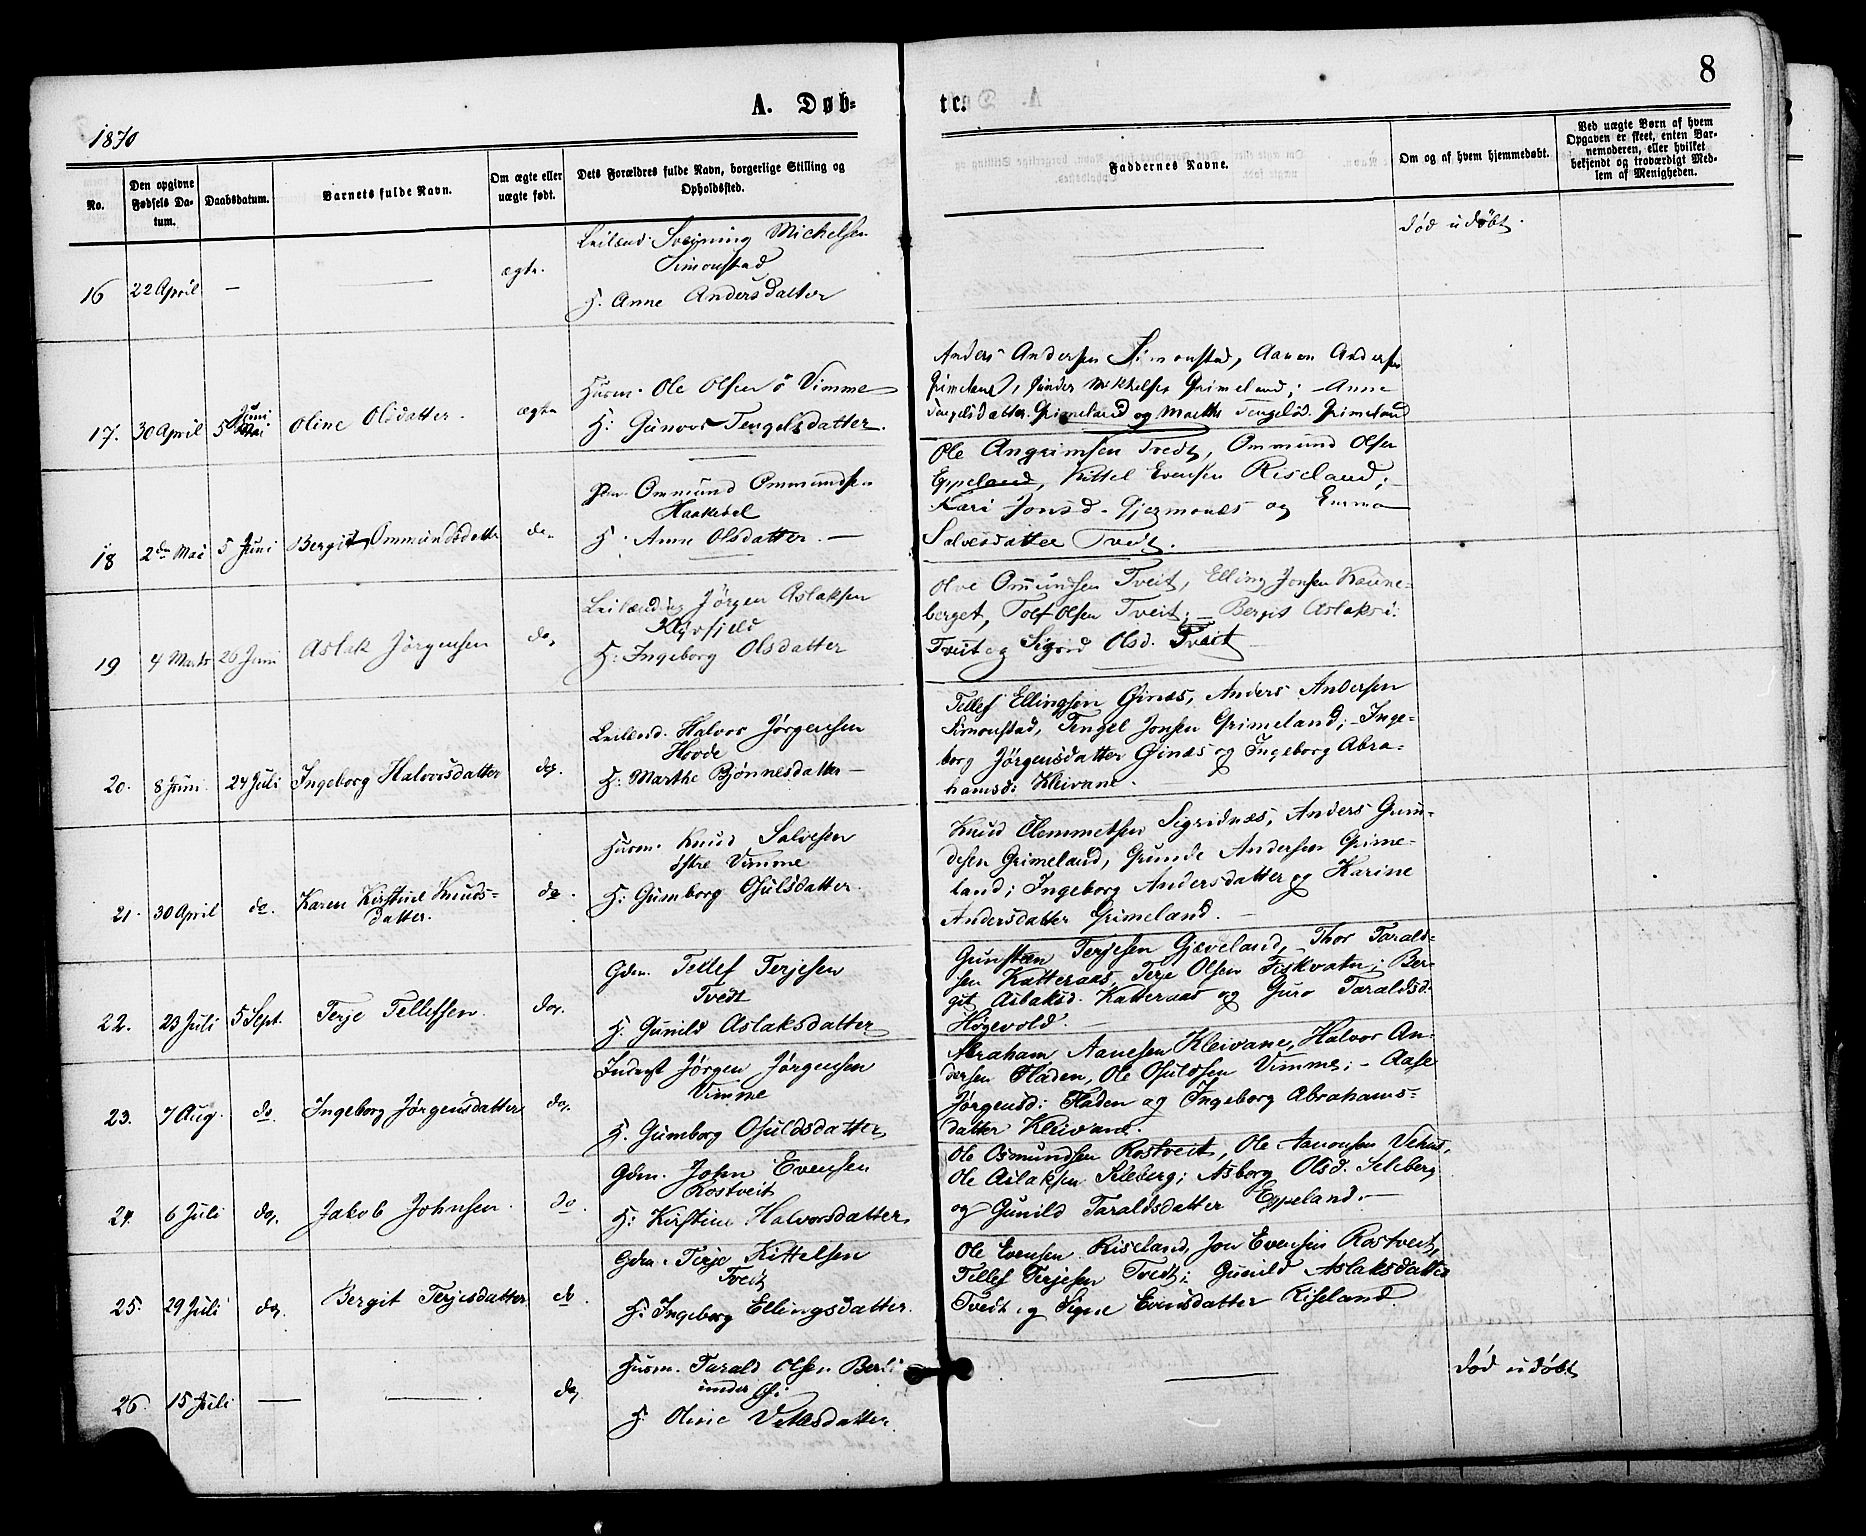 8
A. Døb-
te.
1870
No.
Den opgivne Fødsels Datum.
Daabsdatum.
Barnets fulde Navn.
Om ægte eller uægte født.
Dets Forældres fulde Navn, borgerlige Stilling og Opholdssted.
Faddernes Navne.
Om og af hvem hjemmedøbt.
Ved uægte Børn af hvem Opgaven er skeet, enten Barnemoderen, eller hvilket bekjendt og troværdigt Medlem af Menigheden.
16 22 April — — ægte.
Leilænd. Svejning Mickelsen
Simonstad
H. Anne Andersdatter
—
død udøbt.
17. 30 April 5 Juni Oline Olsdatter. ægte
Husm. Ole Olsen ö Vimme
H: Gunvor Tengelsdatter.
Anders Andersen Simonstad, Aanon Anders
Grimeland, Gunder Mikkelsen Grimeland; – Anne
Tengelsdatter Grimeland og Marthe Tengelsd. Grimeland
18 2den Mai 5 Juni Bergit Ommundsdatter do.
Gdm. Ommund Ommundsen
Haakedal
H. Anne Olsdatter. —
Ole Angrimsen Tvedt, Ommund Olsen
Eppeland, Kittel Evensen Riseland; –
Kari Jonsd. Gjermonæs og Emma
Salvesdatter Tvedt.
19 4 Marts 26 Juni Aslak Jörgensen do.
Leilænding Jörgen Aslaksen
H: Ingeborg Olsdatter
Olve Omundsen Tveit, Elling Jonsen Kaune-
berget, Tolf Olsen Tveit; – Bergit Aslaksd:
Tveit og Sigrid Olsd. Tveit
20. 8 Juni. 24 Juli Ingeborg Halvorsdatter do.
Leilænd. Halvor Jörgensen
Hovde
H: Marthe Bjönnesdatter —
Tellef Ellingsen Öinæs, Anders Andersen
Simonstad, Tengel Jonsen Grimeland; – Inge-
borg Jörgensdatter Öinæs og Ingeborg Abra-
hamsd: Kleivane.
21. 30 April do. Karen Kirstine Knuds-
datter. do.
Husm. Knud Salvesen
östre Vimme
H: Gumborg Osulsdatter.
Knud Clemmetsen Sigridnæs, Anders Gun-
desen Grimeland, Grunde Andersen Grime-
land; Ingeborg Andersdatter og Karine
Andersdatter Grimeland. —
22. 23 Juli 5 Sept. Terje Tellefsen. do.
Gdm. Tellef Terjesen
Tvedt
H. Gunild Aslaksdatter
Gunsteen Terjesen Gjæveland, Thor Tarald-
sen Katteraas, Terje Olsen Fiskvatn; Ber-
git Aslaksd. Katteraas og Guro Taraldsd.
Högevold. —
23. 7 Aug. do. Ingeborg Jörgensdatter do.
Inderst Jörgen Jörgensen
Vimme
H. Gumborg Osuldsdatter
Abraham Aanesen Kleivane, Halvor An-
dersen Fladen, Ole Osuldsen Vimme; – Aase
Jörgensd: Fladen og Ingeborg Abrahams-
datter Kleivane.
24. 6 Juli do. Jakob Johnsen. do.
Gdm. John Evensen
Rostveit
H: Kirstine Halvorsdatter
Ole Osmundsen Rostveit, Ole Aanonsen Vehus,
Ole Aslaksen Kleberg; Asborg Olsd. Seleberg
og Gunild Taraldsdatter Eppeland. —
25. 29 Juli do. Bergit Terjesdatter do.
Gdm. Terje Kittelsen
Tvedt
H: Ingeborg Ellingsdatter.
Ole Evensen Riseland, Jon Evensen Rostveit,
Tellef Terjesen Tvedt; Gunild Aslaksdatter
Tvedt og Signe Evensdatter Riseland.
26. 15 Juli — — do.
Husm. Tarald Olsen Berli
under Ei
H. Oline
—
död udöbt